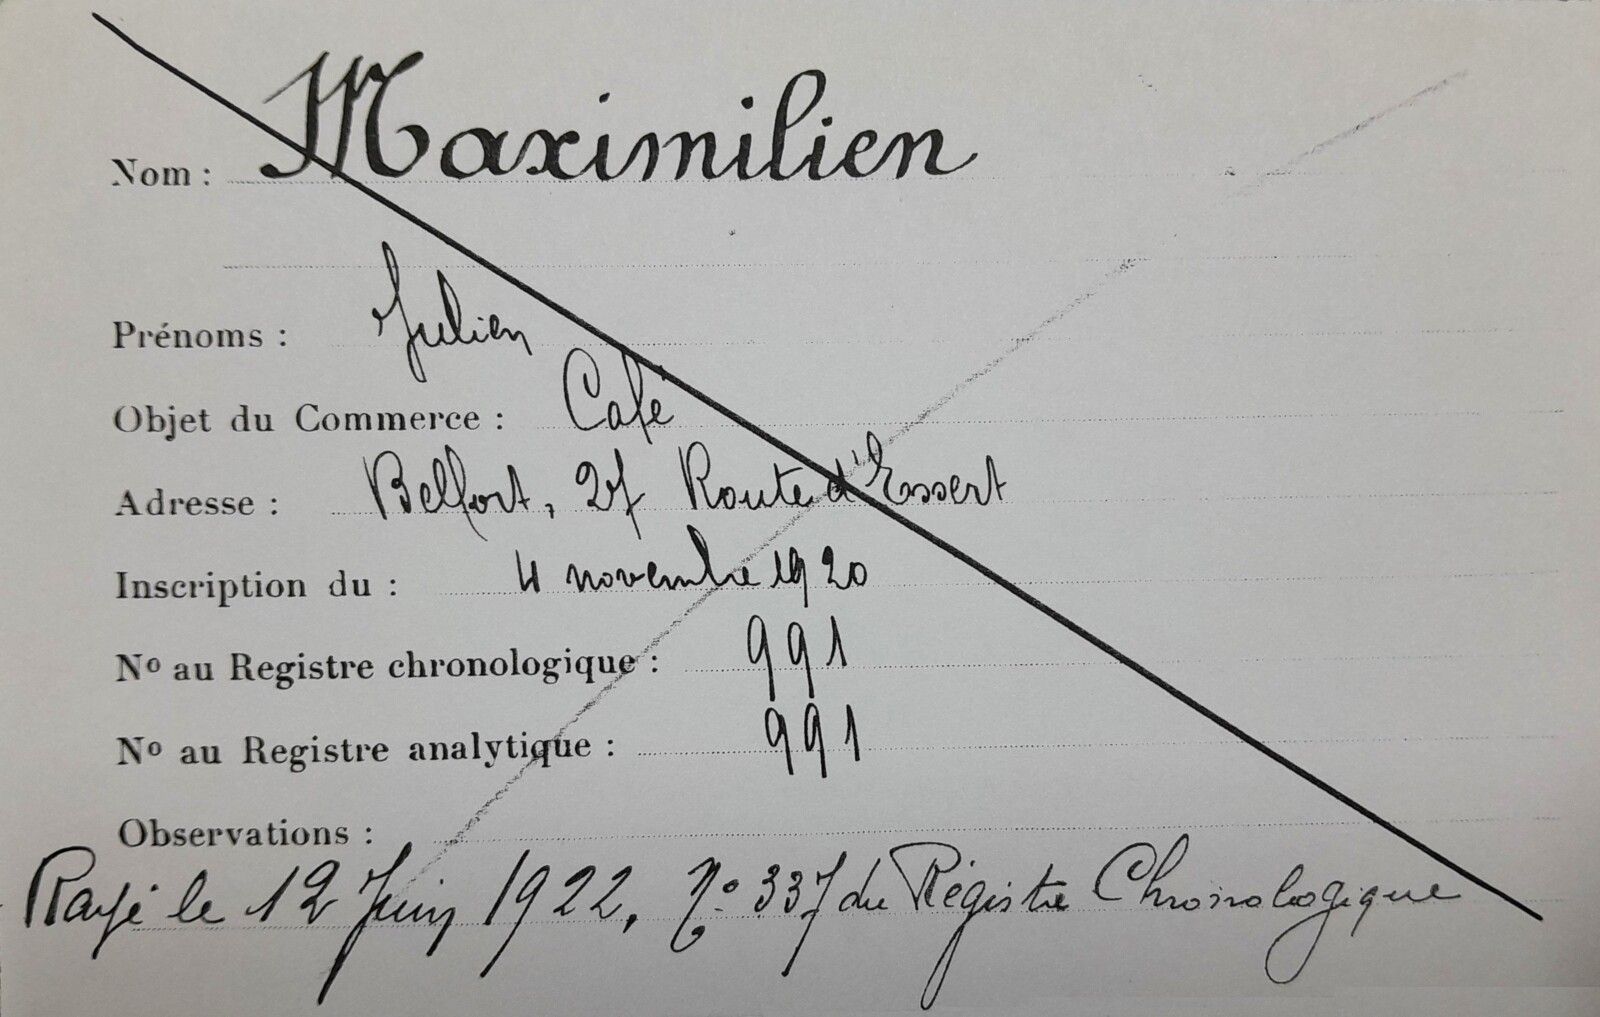 Nom : Maximilien
Prénoms : Julien
Objet du Commerce : Café
Adresse : Belfort, 27 Route d'Essert
Inscription du : 4 novembre 1920
Nº au Registre chronologique : 991
Nº au Registre analytique : 991
Observations :
Rayé le 12 Juin 1922, Nº 337 du Régistre Chronologique